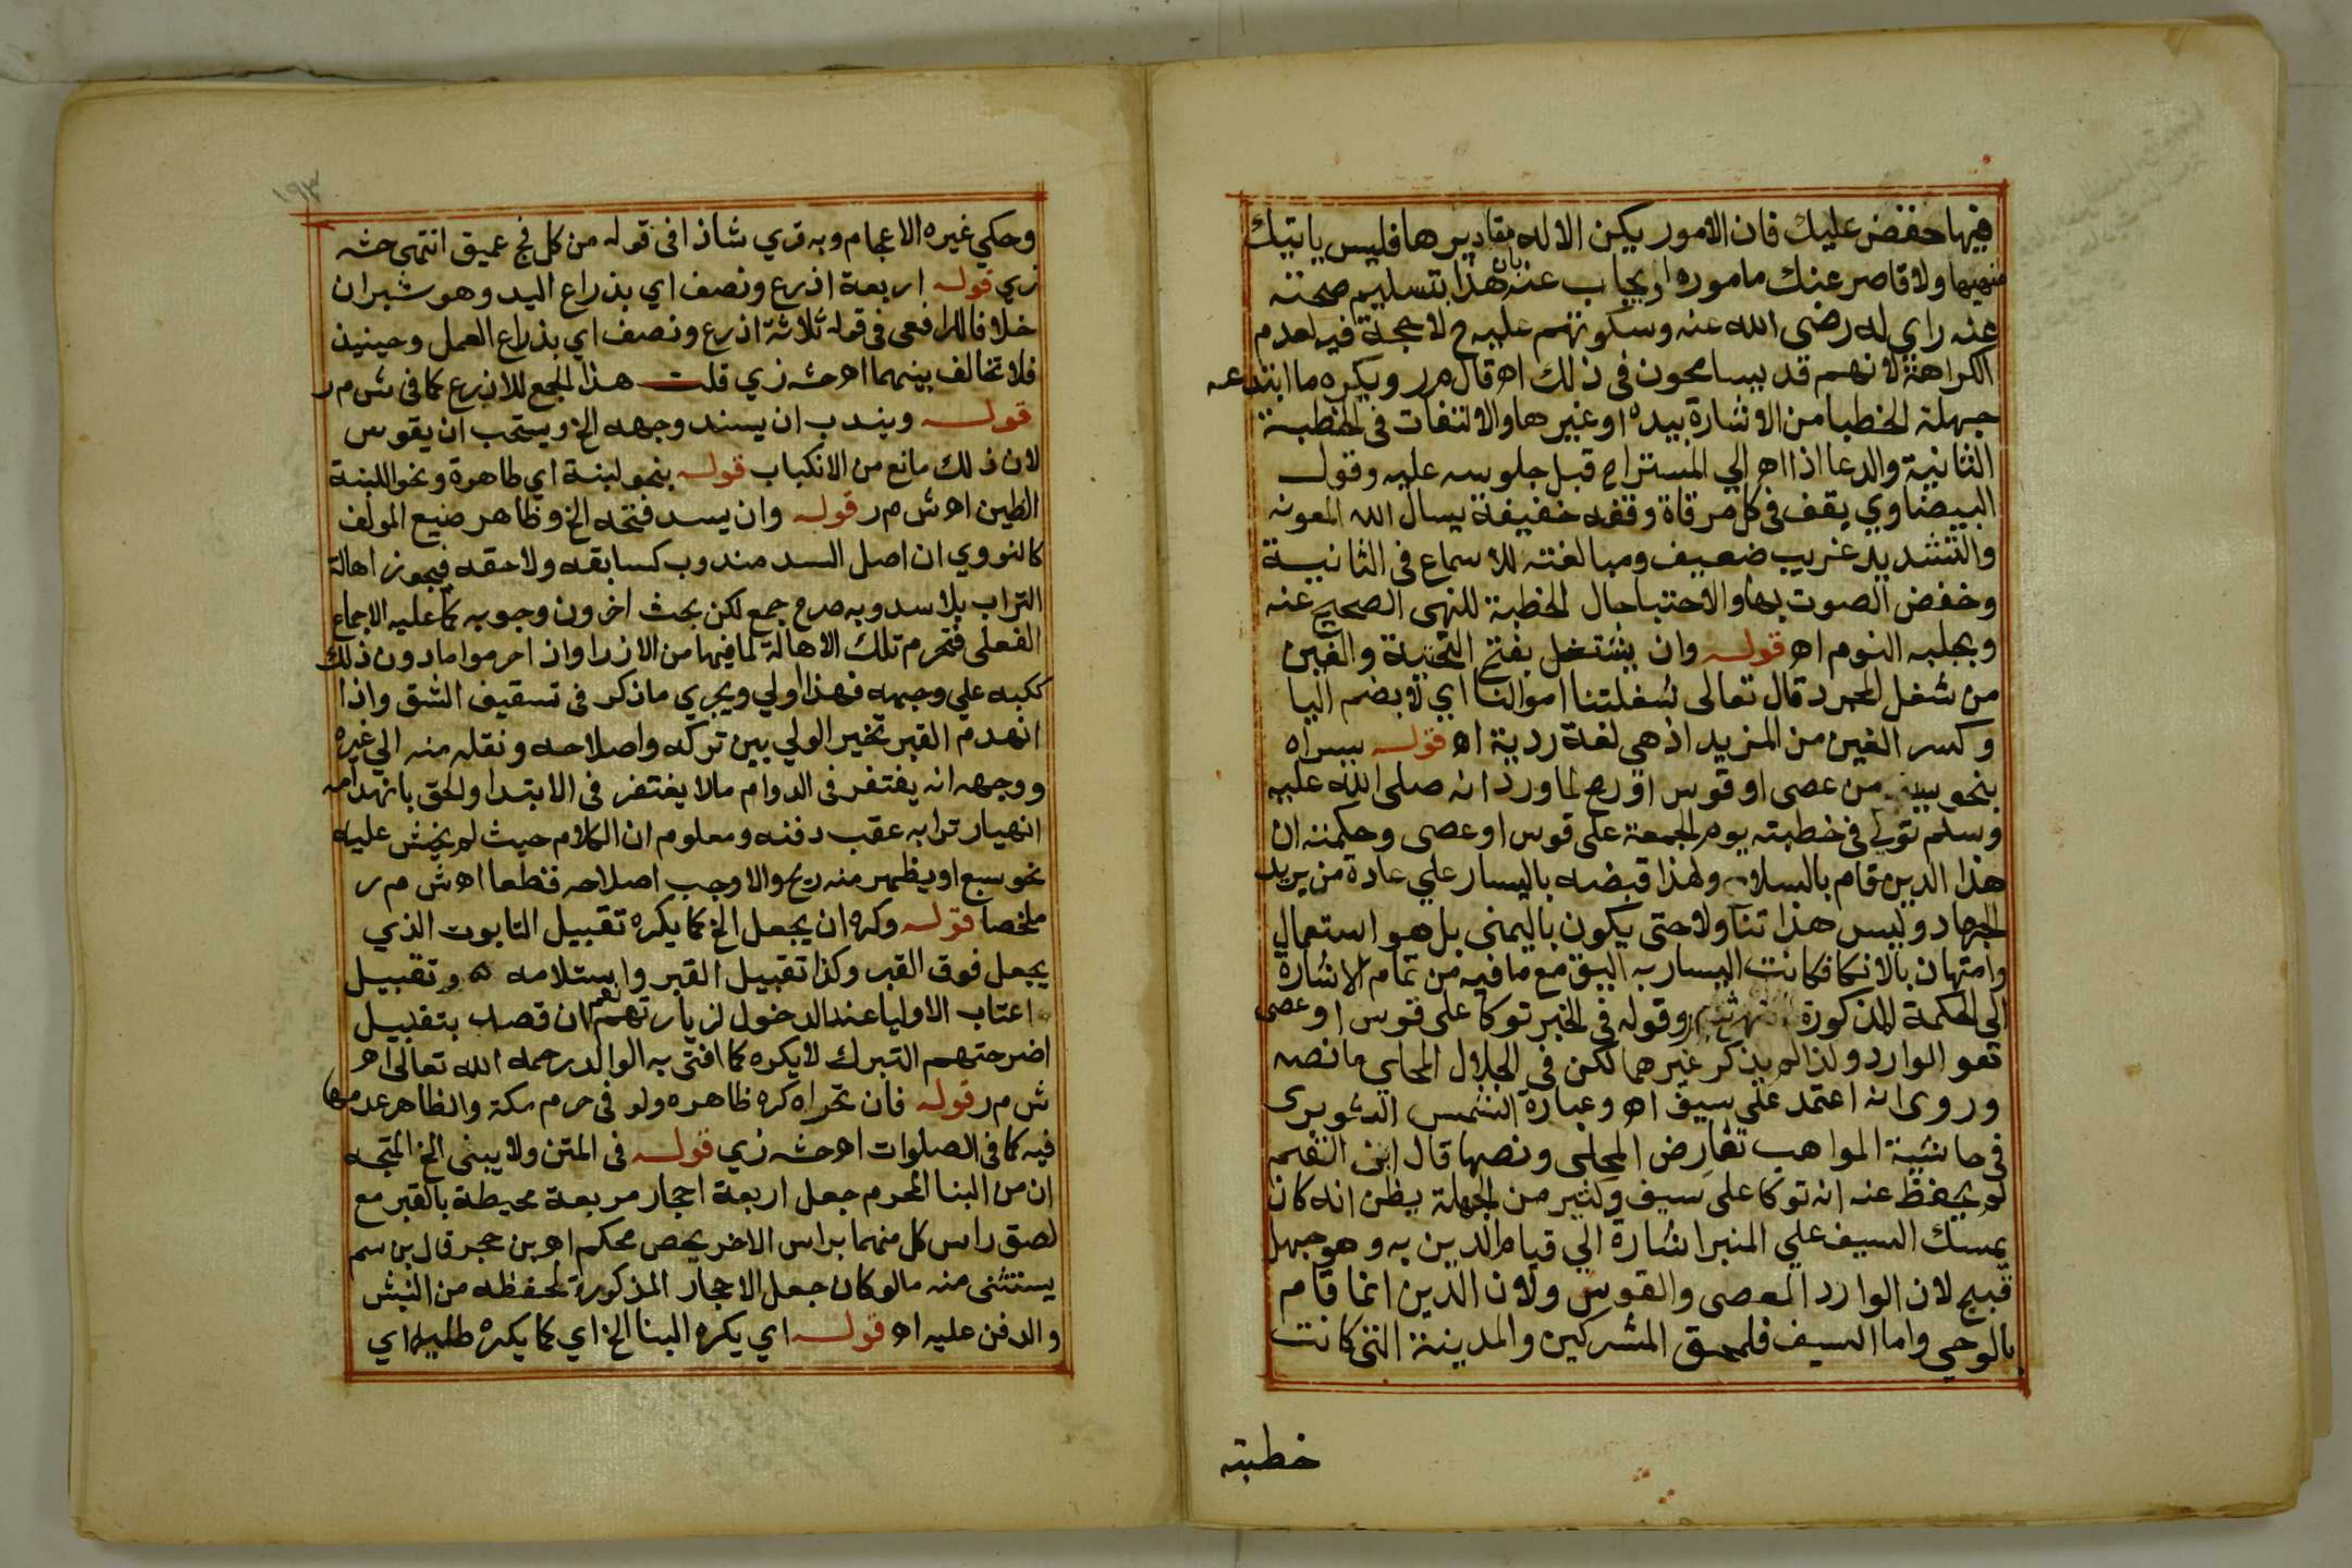 فيها خفض عليك فان الامور يكن الاله مقاديرها فليس ياتيك
منهيها ولا قاصر عنك مامورها ويجاب عنه بان هذا بتسليم صحته
عنه راي له رضي الله عنه وسكوتهم عليه ح لا حجة فيه لعدم
الكراهة لانهم قد يسامحون في ذلك اه قال م ر ويكره ما ابتدعه
جهلة الخطبا من الاشارة بيده او غيرها والالتفات في الخطبة
الثانية والدعا اذا اه الي المستراح قبل جلوسه عليه وقول
البيضاوي يقف في كل مرقاة وقفه خفيفة يسال الله المعونه
والتشديد غريب ضعيف ومبالغته للاسماع في الثانية
وخفض الصوت بها والاحتبا حال الخطبة للنهي الصحيح عنه
ويجلبه النوم اه قوله وان يشتغل بفتح التحتية والغين
من شغل المجرد قال تعالى شغلتنا اموالنا اي لا بضم اليا
وكسر الغين من المزيد اذ هي لغة ردية اه قوله يسراه
بنحو سيف من عصى او قوس او رمح لما ورد انه صلى الله عليه
وسلم توكي في خطبته يوم الجمعة على قوس او عصى وحكمته ان
هذا الدين قام بالسلاح ولهذا قبضه باليسار علي عادة من يريد
الجهاد وليس هذا تناولا حتى يكون باليمنى بل هو استعمال
وامتهان بالاتكا فكانت اليسار به اليق مع ما فيه من تمام الاشارة
الى الحكمة المذكورة وقوله في الخبر توكا على قوس او عصى
هو الوارد ولذا لم يذكر غيرهما لكن في الجلال المحلي ما نصه
وروي انه اعتمد على سيف اه وعبارة الشمس الشوبرى
في حاشية المواهب تعارض المحلى ونصها قال ابن القيم
لم يحفظ عنه انه توكا على سيف وكثير من الجهلة يظن انه كان
يمسك السيف علي المنبر اشارة الي قيام الدين به وهو جهل
قبيح لان الوارد العصى والقوس ولان الدين انما قام
بالوحي واما السيف فلمحق المشركين والمدينة التي كانت
خطبته
١٩٣
وحكي غيره الاعجام وبه قري شاذا في قوله من كل فج عميق انتهى حشه
زي قوله اربعة اذرع ونصف اي بذراع اليد وهو شبران
خلافا للرافعي في قوله ثلاثة اذرع ونصف اي بذراع العمل وحينيذ
فلا تخالف بينهما اه حشه زي قلت هذا الجمع للاذرع كما في ش م ر
قوله ويندب ان يسند وجهه الخ ويستحب ان يقوس
لان ذلك مانع من الانكباب قوله بنحو لبنة اي طاهرة ونحو اللبنة
الطين اه ش م ر قوله وان يسد فتحه الخ وظاهر صنيع المولف
كالنووي ان اصل السد مندوب كسابقه ولاحقه فيجوز اهالة
التراب بلا سد وبه صرح جمع لكن بحث اخرون وجوبه كما عليه الاجماع
الفعلى فتحرم تلك الاهالة لما فيها من الازرا واذا حرموا ما دون ذلك
ككبه علي وجهه فهذا اولي ويجري ما ذكر في تسقيف الشق واذا
انهدم القبر تخير الولي بين تركه واصلاحه ونقله منه الي غيره
ووجهه انه يغتفر في الدوام ما لا يغتفر في الابتدا والحق بانهدامه
انهيار ترابه عقب دفنه ومعلوم ان الكلام حيث لم يخش عليه
نحو سبع او يظهر منه ريح والا وجب اصلاحه قطعا اه ش م ر
ملخصا قوله وكره ان يجعل الخ كما يكره تقبيل التابوت الذي
يجعل فوق القبر وكذا تقبيل القبر واستلامه وتقبيل
اعتاب الاوليا عند الدخول لزيارتهم نعم ان قصد بتقبيل
اضرحتهم التبرك لا يكره كما افتى به الوالد رحمه الله تعالى اه
ش م ر قوله فان تحراه كره ظاهره ولو في حرم مكة والظاهر عدمها
فيه كما في الصلوات اه حشه زي قوله في المتن ولا يبنى الخ المتجه
ان من البنا المحرم جعل اربعة احجار مربعة محيطة بالقبر مع
لصق راس كل منهما براس الاخر بجص محكم اه بن حجر قال بن سم
يستثنى منه ما لو كان جعل الاحجار المذكورة لحفظه من النبش
والدفن عليه اه قوله اي يكره البنا الخ اي كما يكره طليه اي